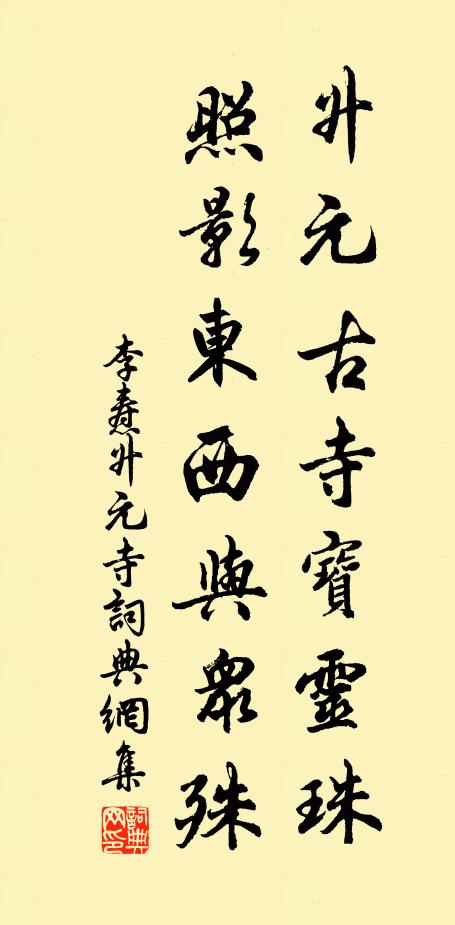 升元古寺寶靈珠
照影東西與衆殊
李燾升元寺詞典網集
詞典網印